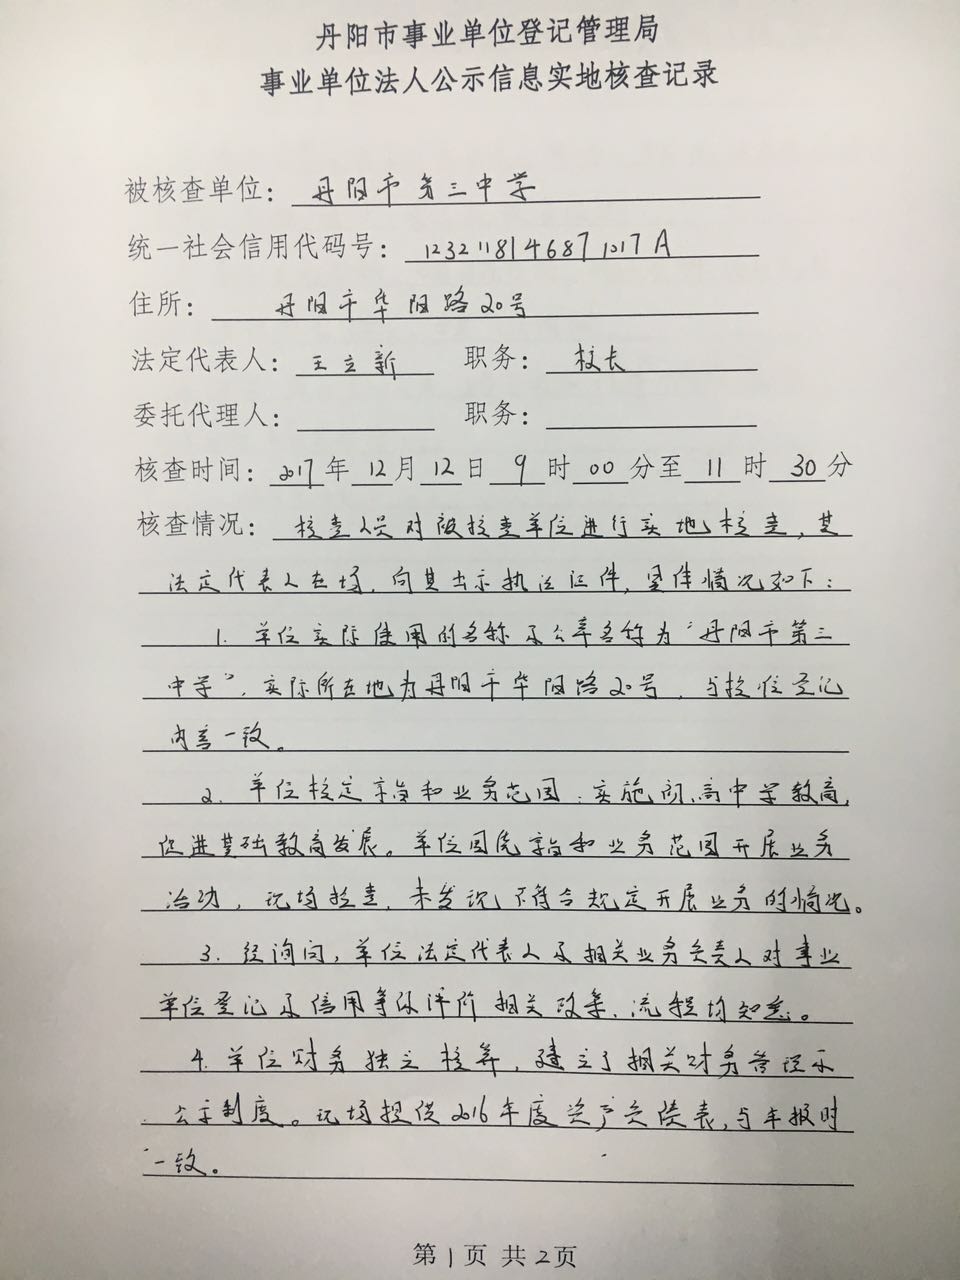 丹阳市事业单位登记管理局
事业单位法人公示信息实地核查记录
被核查单位：丹阳市第三中学
统一社会信用代码号：1232118146871017A
住所：丹阳市华阳路20号
法定代表人：王立新 职务：校长
委托代理人： 职务：
核查时间：2017年12月12日9时00分至11时30分
核查情况：核查人员对被核查单位进行实地核查，其
法定代表人在场，向其出示执法证件，具体情况如下：
1. 单位实际使用的名称及公章名称为“丹阳市第三
中学”，实际所在地为丹阳市华阳路20号，与核准登记
内容一致。
2. 单位核定宗旨和业务范围：实施初、高中学教育，
促进基础教育发展。单位围绕宗旨和业务范围开展业务
活动，现场核查，未发现不符合规定开展业务的情况。
3. 经询问，单位法定代表人及相关业务负责人对事业
单位登记及信用等级评价相关政策、流程均知悉。
4. 单位财务独立核算，建立了相关财务管理及
公示制度。现场提供2016年度资产负债表，与年报时
一致。
第1页 共2页